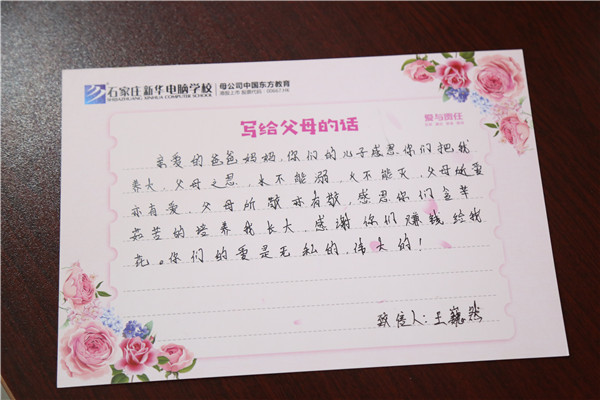 石家庄新华电脑学校 母公司中国东方教育
SHIJIAZHUANG XINHUA COMPUTER SCHOOL 港股上市 股票代码:00667.HK
写给父母的话
爱与责任
亲爱的爸爸妈妈,你们的儿子感恩你们把我
养大,父母之恩,水不能溺,火不能灭,父母所爱
亦有爱,父母所敬亦有敬,感恩你们含辛
茹苦的培养我长大,感谢你们赚钱给我
花。你们的爱是无私的,伟大的!
致信人:王巍然